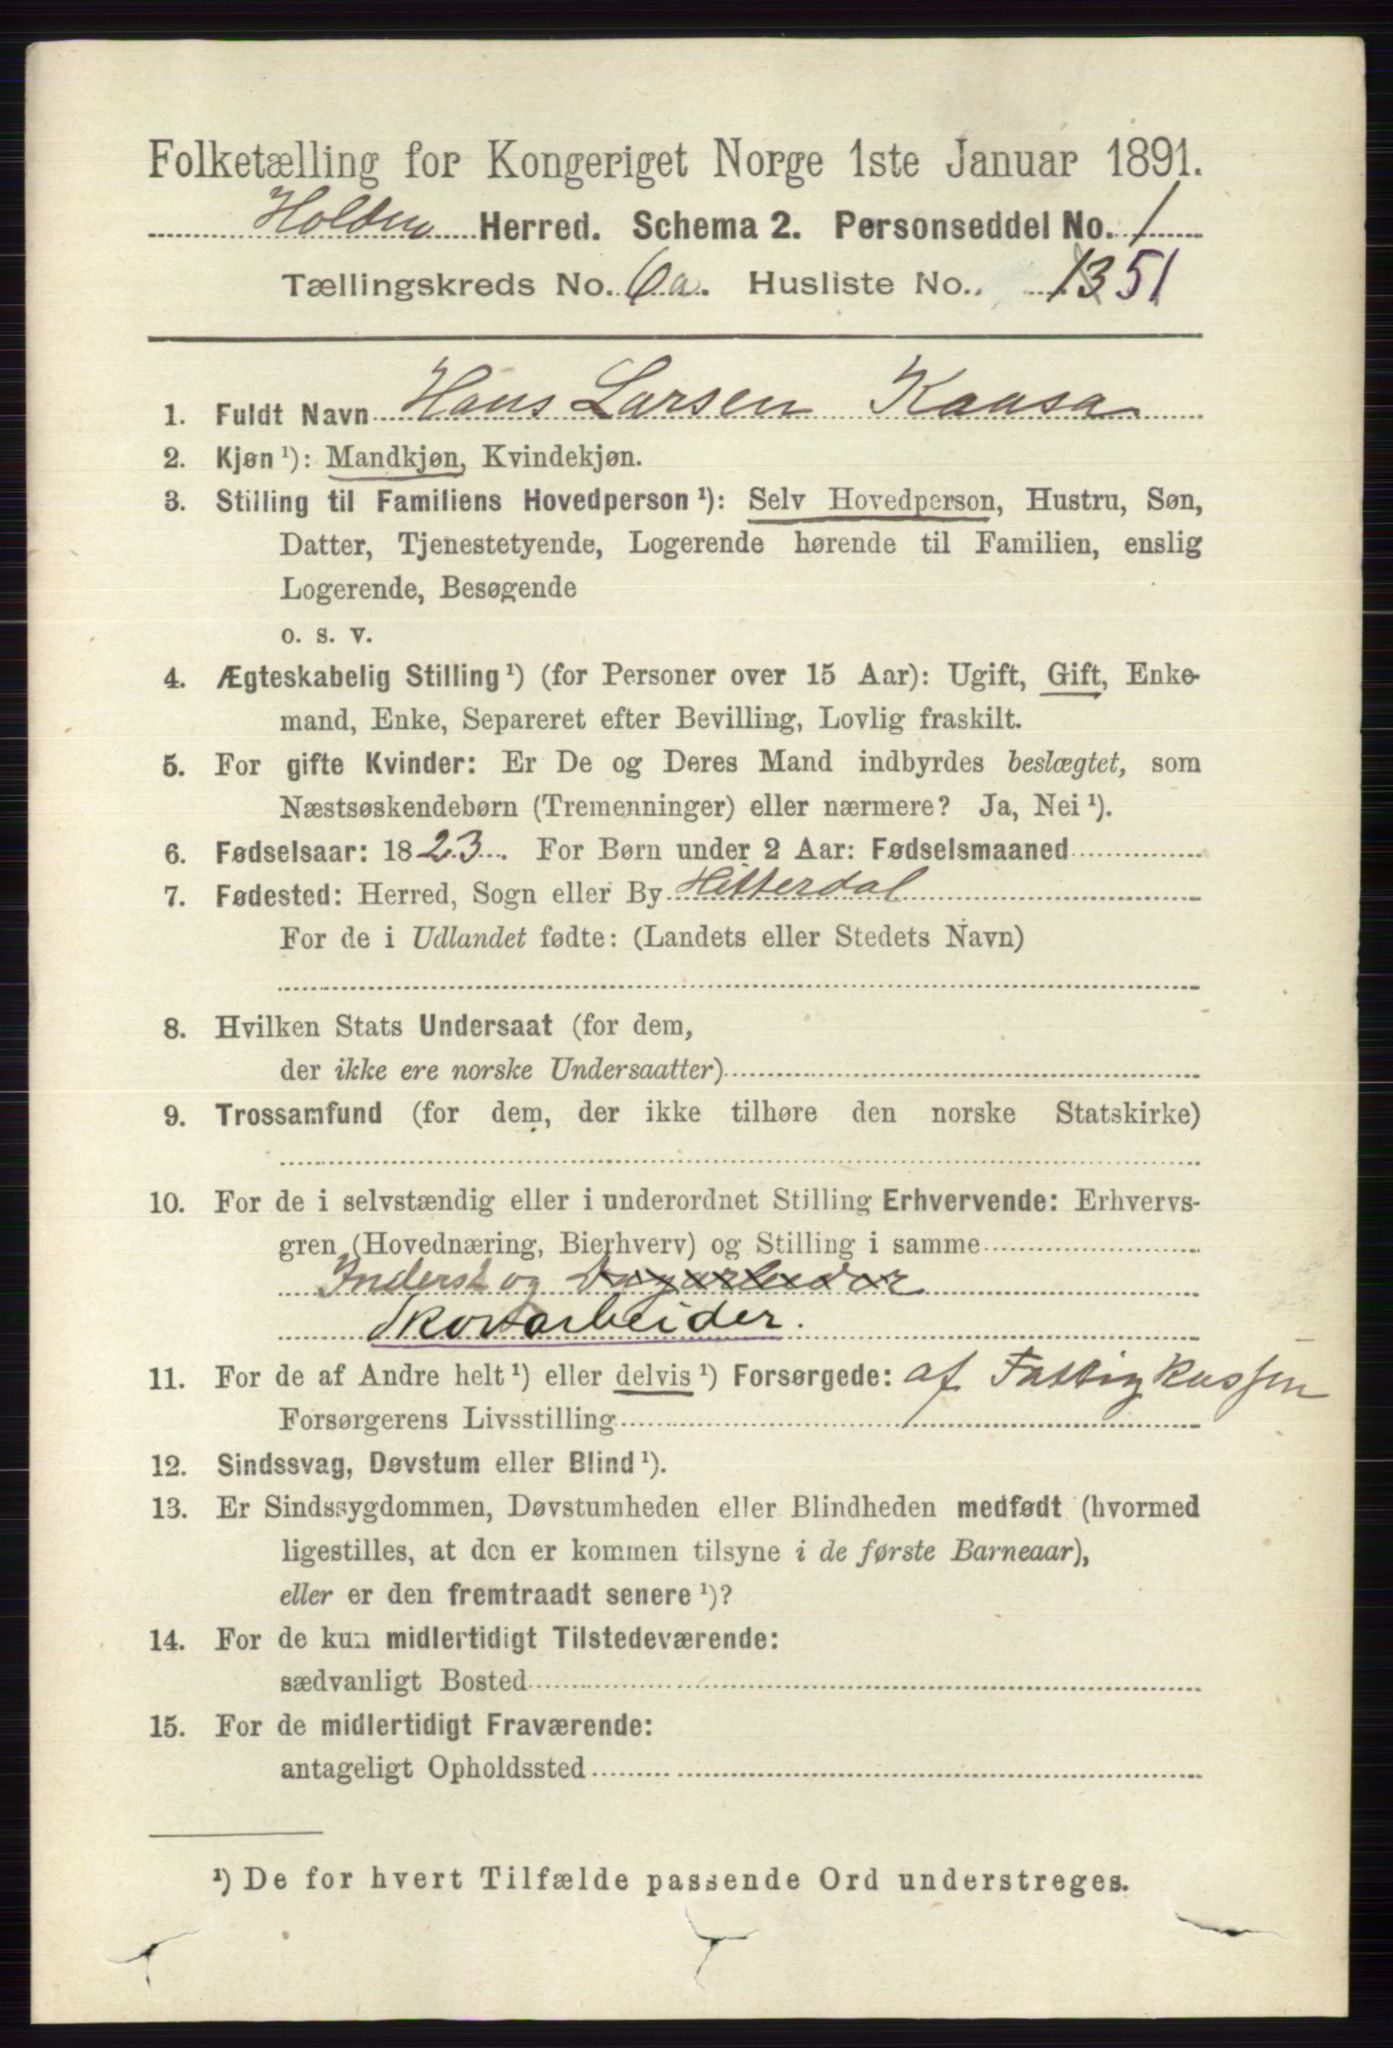 Folketælling for Kongeriget Norge 1ste Januar 1891.
Holden Herred. Schema 2. Personseddel No. 1
Tællingskreds No. 6a. Husliste No. 51
1. Fuldt Navn Hans Larsen Kaasa
2. Kjøn ¹): Mandkjøn, Kvindekjøn.
3. Stilling til Familiens Hovedperson ¹): Selv Hovedperson, Hustru, Søn,
Datter, Tjenestetyende, Logerende hørende til Familien, enslig
Logerende, Besøgende
o. s. v.
4. Ægteskabelig Stilling ¹) (for Personer over 15 Aar): Ugift, Gift, Enke-
mand, Enke, Separeret efter Bevilling, Lovlig fraskilt.
5. For gifte Kvinder: Er De og Deres Mand indbyrdes beslægtet, som
Næstsøskendebørn (Tremenninger) eller nærmere? Ja, Nei ¹).
6. Fødselsaar: 1823. For Børn under 2 Aar: Fødselsmaaned
7. Fødested: Herred, Sogn eller By Hitterdal
For de i Udlandet fødte: (Landets eller Stedets Navn)
8. Hvilken Stats Undersaat (for dem,
der ikke ere norske Undersaatter)
9. Trossamfund (for dem, der ikke tilhøre den norske Statskirke)
10. For de i selvstændig eller i underordnet Stilling Erhvervende: Erhvervs-
gren (Hovednæring, Bierhverv) og Stilling i samme
Inderst og Dagarbeider
Skovarbeider.
11. For de af Andre helt ¹) eller delvis ¹) Forsørgede: af Fattigkassen
Forsørgerens Livsstilling
12. Sindssvag, Døvstum eller Blind ¹).
13. Er Sindssygdommen, Døvstumheden eller Blindheden medfødt (hvormed
ligestilles, at den er kommen tilsyne i de første Barneaar),
eller er den fremtraadt senere ¹)?
14. For de kun midlertidigt Tilstedeværende:
sædvanligt Bosted
15. For de midlertidigt Fraværende:
antageligt Opholdssted
¹) De for hvert Tilfælde passende Ord understreges.